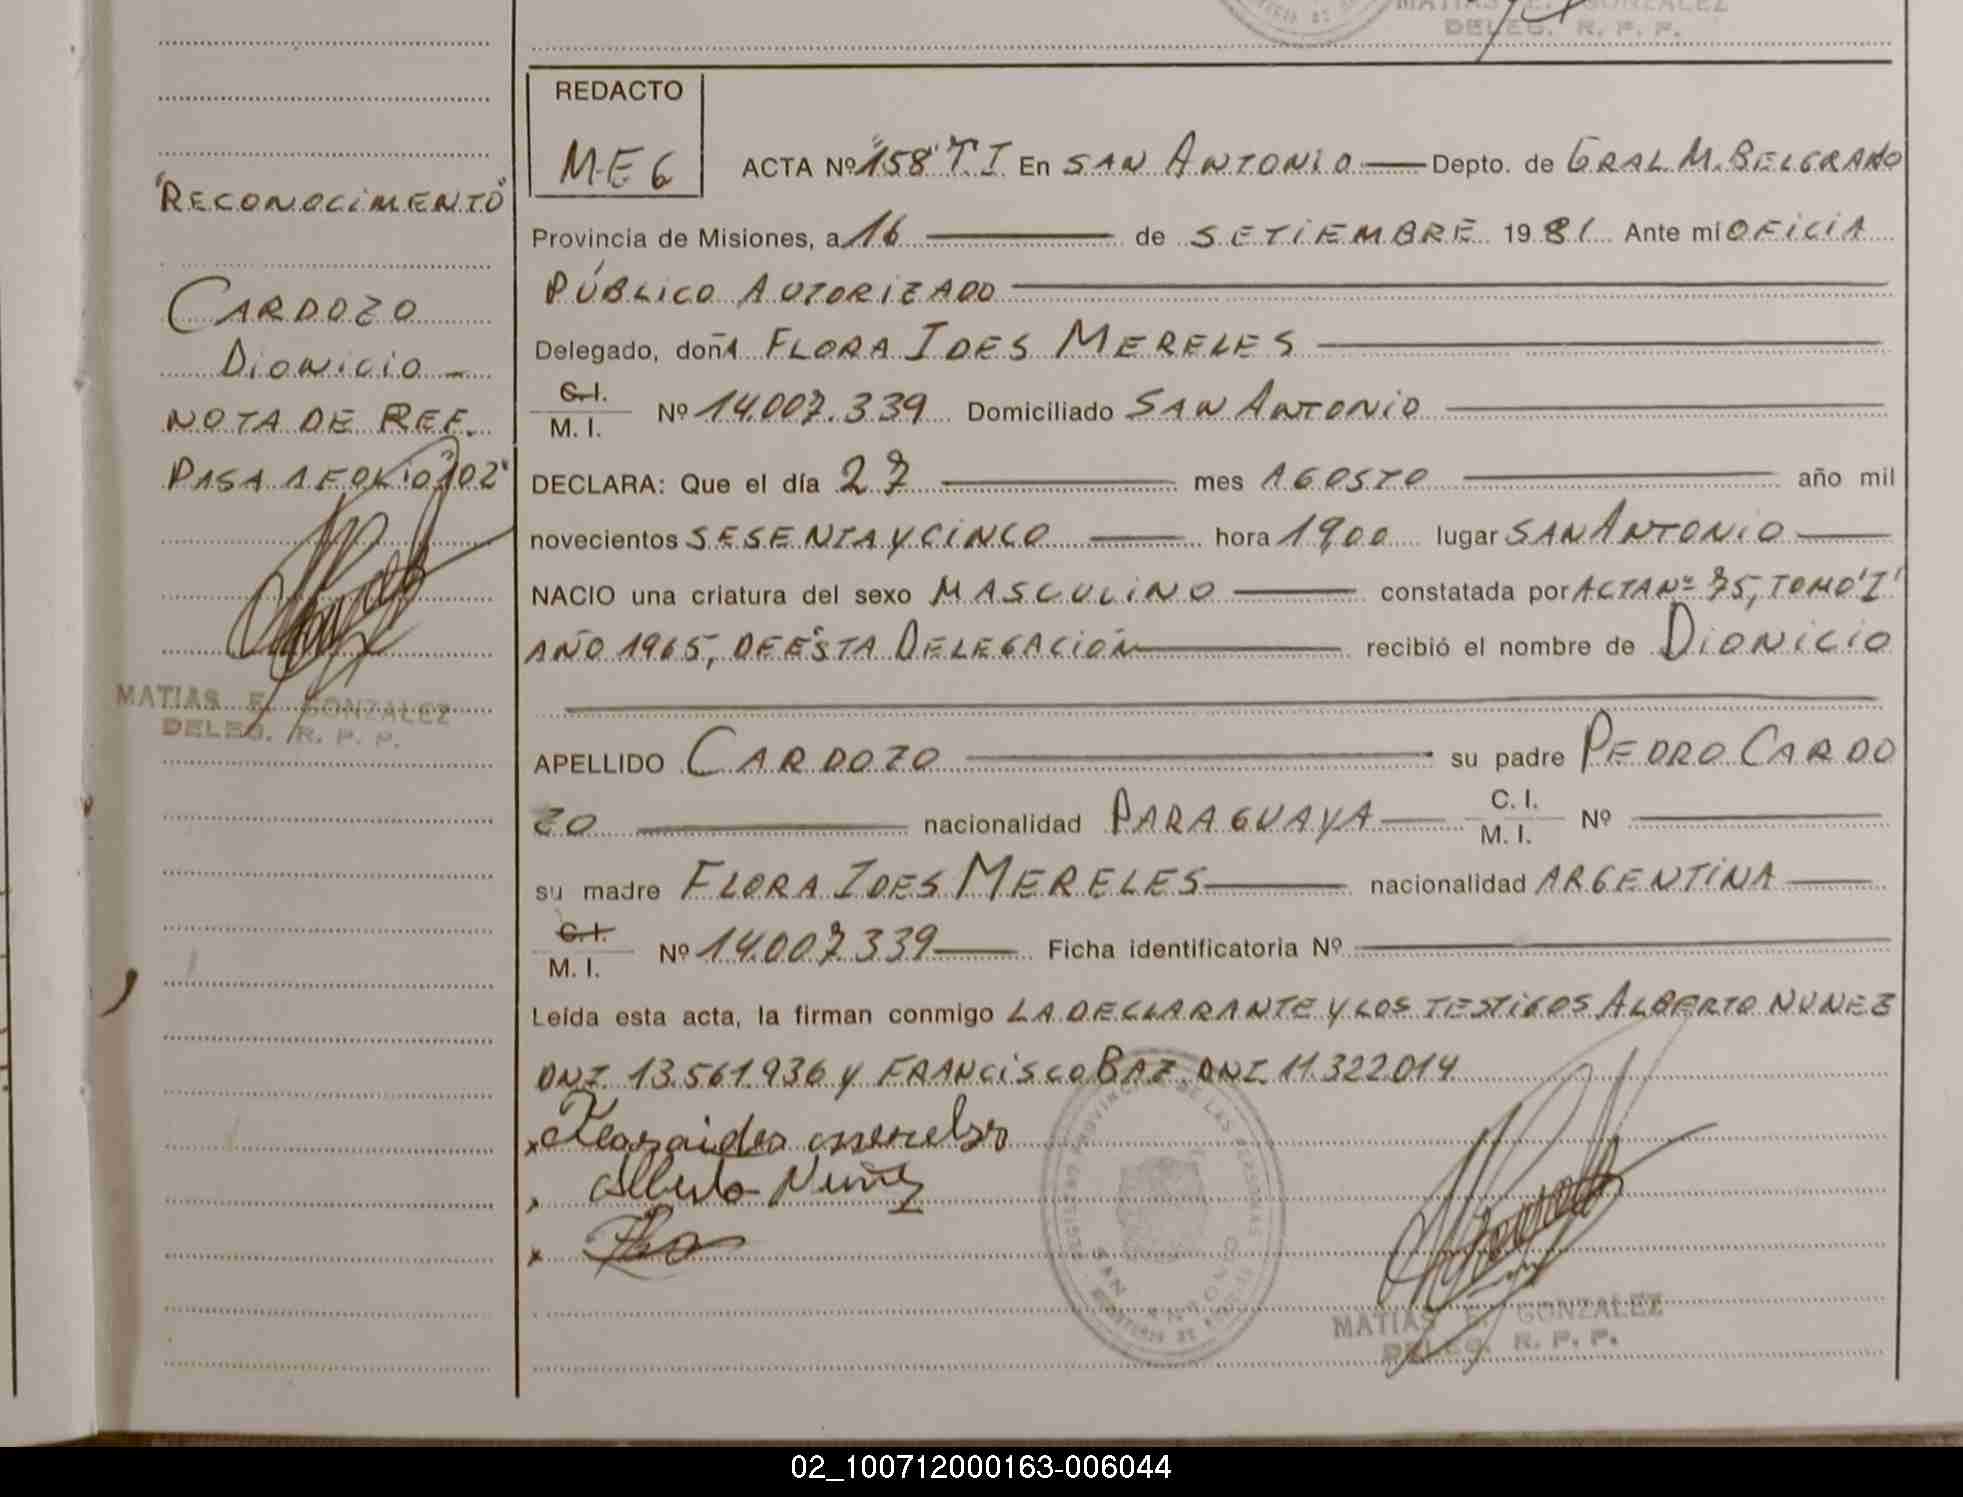 MATIAS E. GONZALEZ
DELEG. R. P. P.
REDACTO
MEG
ACTA Nº "158" T.I En SAN ANTONIO Depto. de GRAL M. BELGRANO
Provincia de Misiones, a 16 de SETIEMBRE 1981 Ante mi OFICIA
PÚBLICO AUTORIZADO
Delegado, doñA FLORA IDES MERELES
C. I.
M. I. Nº 14.007.339 Domiciliado SAN ANTONIO
DECLARA: Que el día 27 mes AGOSTO año mil
novecientos SESENTA Y CINCO hora 19,00 lugar SAN ANTONIO
NACIO una criatura del sexo MASCULINO constatada por ACTA Nº 75, TOMO "I"
AÑO 1965, DE ESTA DELEGACIÓN recibió el nombre de DIONICIO
APELLIDO CARDOZO su padre PEDRO CARDO
ZO nacionalidad PARAGUAYA C. I. M. I. Nº
su madre FLORA IDES MERELES nacionalidad ARGENTINA
C. I.
M. I. Nº 14.007.339 Ficha identificatoria Nº
Leída esta acta, la firman conmigo LA DECLARANTE Y LOS TESTIGOS ALBERTO NUNEZ
DNI 13.561.936 y FRANCISCO BAZ DNI 11.322014
x
x Alberto Nuñez
x
MATIAS E. GONZALEZ
DELEG. R. P. P.
"RECONOCIMENTO"
CARDOZO
DIONICIO
NOTA DE REF.
PASA A FOLIO "102"
MATIAS E. GONZALEZ
DELEG. R. P. P.
02_100712000163-006044